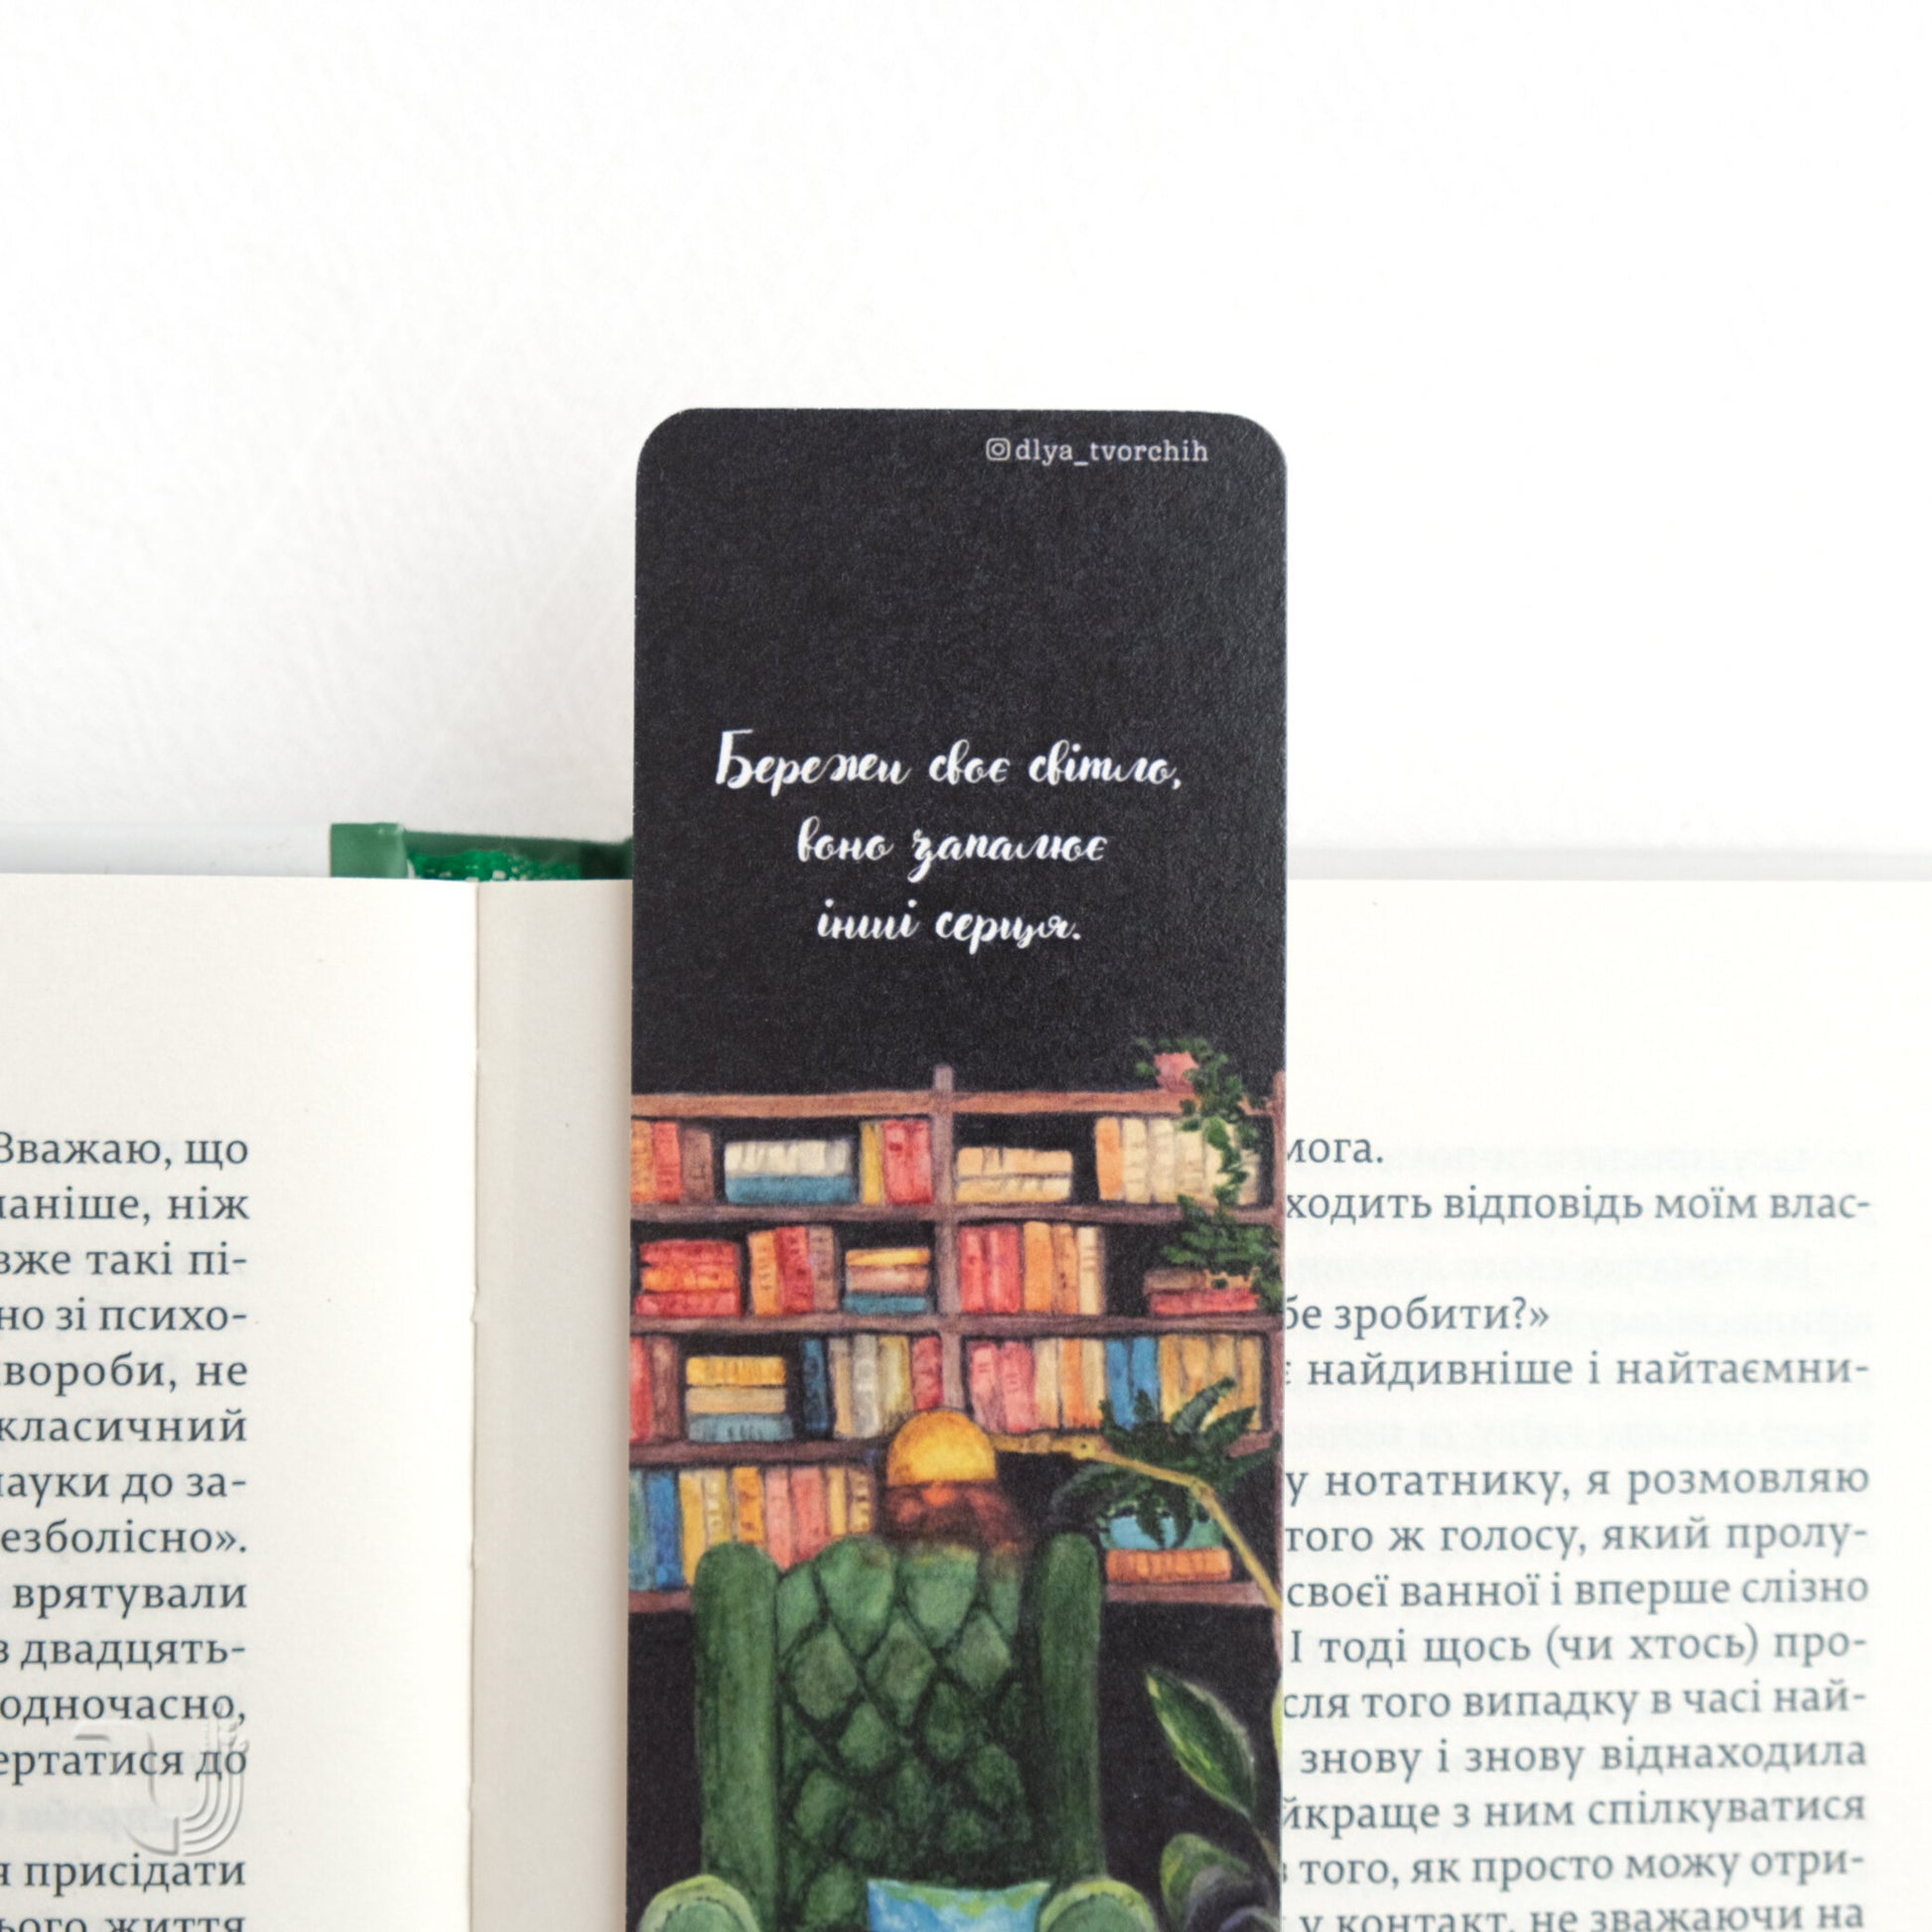 dlya_tvorchih
Бережи своє світло,
воно запалює
інші серця.
Зважаю, що
ніж
вже такі пі-
но зі психо-
хвороби, не
класичний
науки до за-
врятували
двадцять-
одночасно,
до
присідати
життя
ходить відповідь моїм влас-
зробити?»
найдивніше і найтаємни-
у нотатнику, я розмовляю
того ж голосу, який пролу-
своєї ванної і вперше слізно
І тоді щось (чи хтось) про-
того випадку в часі най-
знову і знову віднаходила
з ним спілкуватися
того, як просто можу отри-
у контакт, не зважаючи на